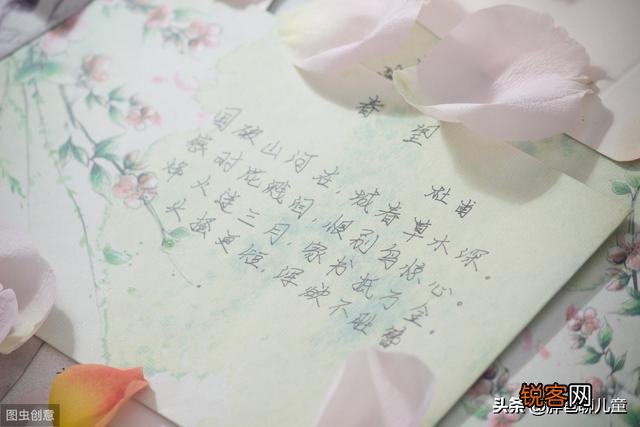 春望
杜甫
国破山河在,城春草木深。
感时花溅泪,恨别鸟惊心。
烽火连三月,家书抵万金。
头搔更短,浑欲不胜簪
图虫创意
头条
锐客网
儿童